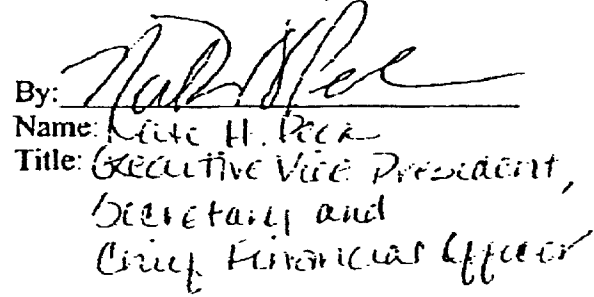 By:
Name: H. Peck
Title: Executive Vice President,
Secretary and
Chief Financial Officer